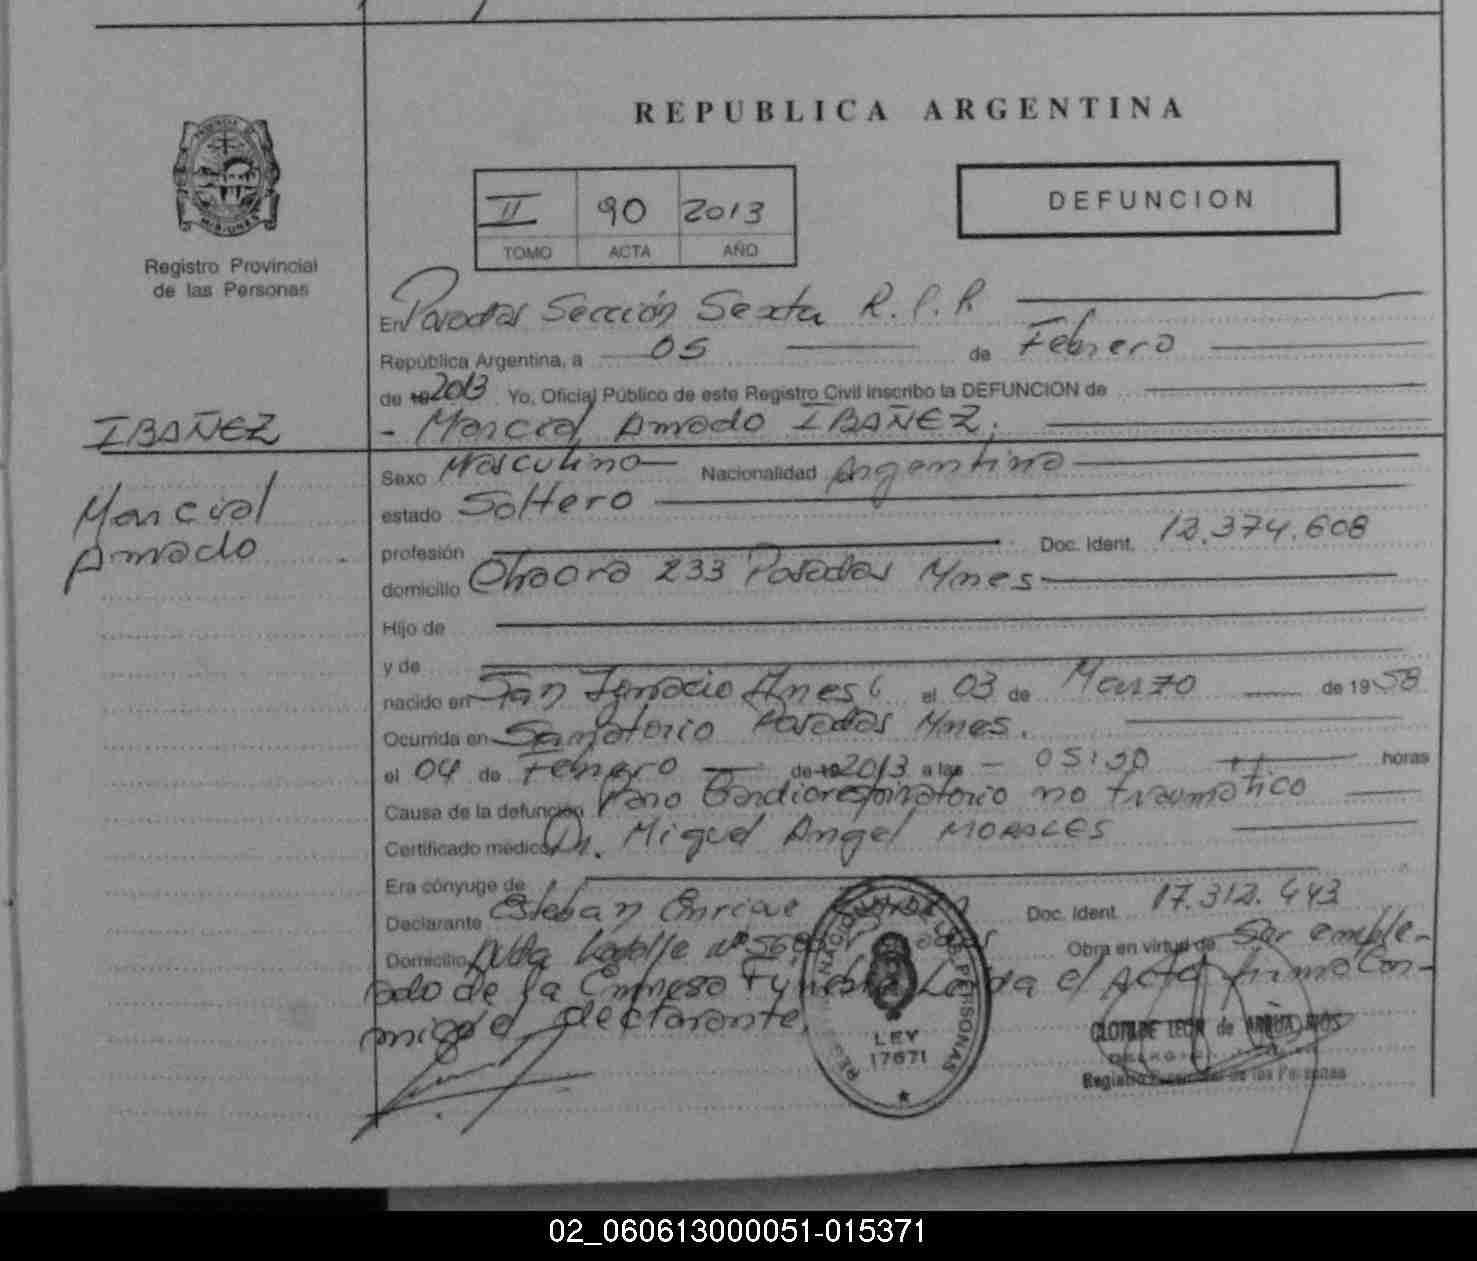 REPUBLICA ARGENTINA
II 90 2013
TOMO ACTA AÑO
DEFUNCION
Registro Provincial
de las Personas
En Posadas Sección Sexta R.P.P.
República Argentina, a 05 de Febrero
de 19 2013 Yo, Oficial Público de este Registro Civil inscribo la DEFUNCION de
- Marcial Amado IBAÑEZ.
IBAÑEZ
Marcial
Amado
Sexo Masculino Nacionalidad Argentina
estado Soltero
profesión Doc. Ident. 12.374.608
domicilio Chacra 233 Posadas Mnes
Hijo de
y de
nacido en San Ignacio Mnes el 03 de Marzo de 1958
Ocurrida en Sanatorio Posadas Mnes.
el 04 de Febrero de 19 2013 a las - 05:30 horas
Causa de la defunción Paro Cardiorespiratorio no traumático
Certificado médico Dr. Miguel Angel MORALES
Era cónyuge de
Declarante Esteban Enrique Doc. Ident. 17.312.443
Domicilio Nº Obra en virtud de Ser emple-
ado de la Empresa Fúnebre Leída el Acta firma con-
migo el declarante.
REGISTRO NACIONAL DE LAS PERSONAS
LEY
17671
CLOTILDE LEON de
Registro Provincial de las Personas
02_060613000051-015371